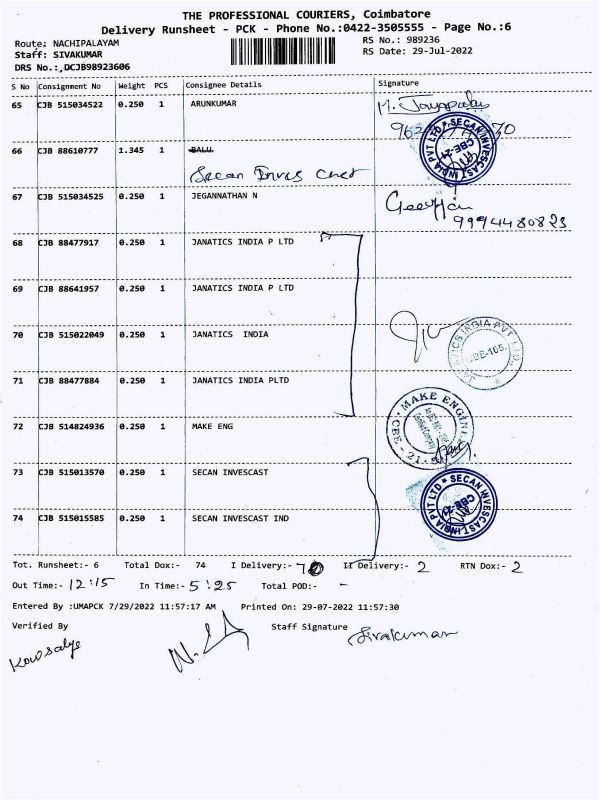 THE PROFESSIONAL COURIERS, Coimbatore
Delivery Runsheet - PCK - Phone No.:0422-3505555 - Page No.:6
Route: NACHIPALAYAM
Staff: SIVAKUMAR
DRS No.:,DCJB98923606
RS No.: 989236
RS Date: 29-Jul-2022
S No Consignment No Weight PCS Consignee Details Signature
65 CJB 515034522 0.250 1 ARUNKUMAR
M. Jayapalan
66 CJB 88610777 1.345 1 BALU
SECAN INVESCAST INDIA PVT LTD CBE-21
Secan Inves
67 CJB 515034525 0.250 1 JEGANNATHAN N
9994480823
68 CJB 88477917 0.250 1 JANATICS INDIA P LTD
69 CJB 88641957 0.250 1 JANATICS INDIA P LTD
70 CJB 515022049 0.250 1 JANATICS INDIA
JANATICS INDIA PVT LTD.,
71 CJB 88477884 0.250 1 JANATICS INDIA PLTD
72 CJB 514824936 0.250 1 MAKE ENG
MAKE CBE - 21
73 CJB 515013570 0.250 1 SECAN INVESCAST
SECAN INVESCAST INDIA PVT LTD CBE-21
74 CJB 515015585 0.250 1 SECAN INVESCAST IND
Tot. Runsheet:- 6 Total Dox:- 74 I Delivery:- 70 II Delivery:- 2 RTN Dox:- 2
Out Time:- 12:15 In Time:- 5:25 Total POD:- -
Entered By :UMAPCK 7/29/2022 11:57:17 AM Printed On: 29-07-2022 11:57:30
Verified By Staff Signature Sivakumar
Kowsalya